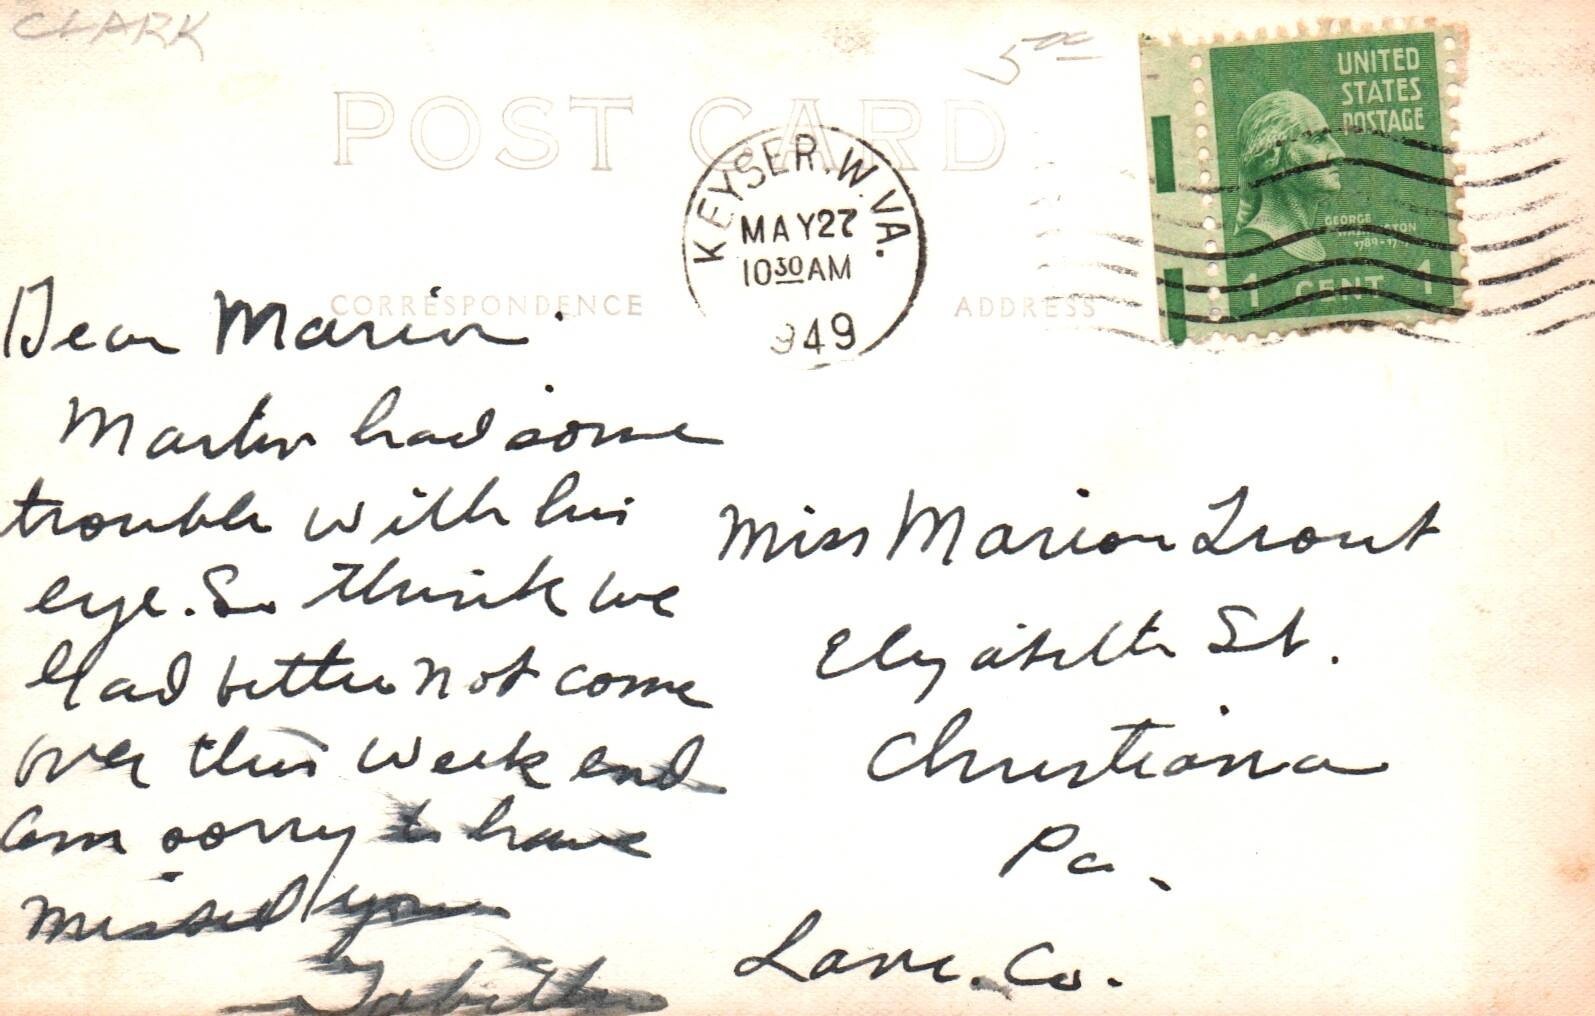 CLARK
5 00
POST CARD
UNITED
STATES
POSTAGE
GEORGE
WASHINGTON
1789-17
1 CENT 1
KEYSER, W. VA.
MAY 27
10 30 AM
1949
CORRESPONDENCE
ADDRESS
Dear Marion.
Martin had some
trouble with his
eye. So think we
had better not come
over this week end
am sorry to have
missed you
Tabitha
Miss Marion Trout
Elizabeth St.
Christiana
Pa.
Lanc. Co.